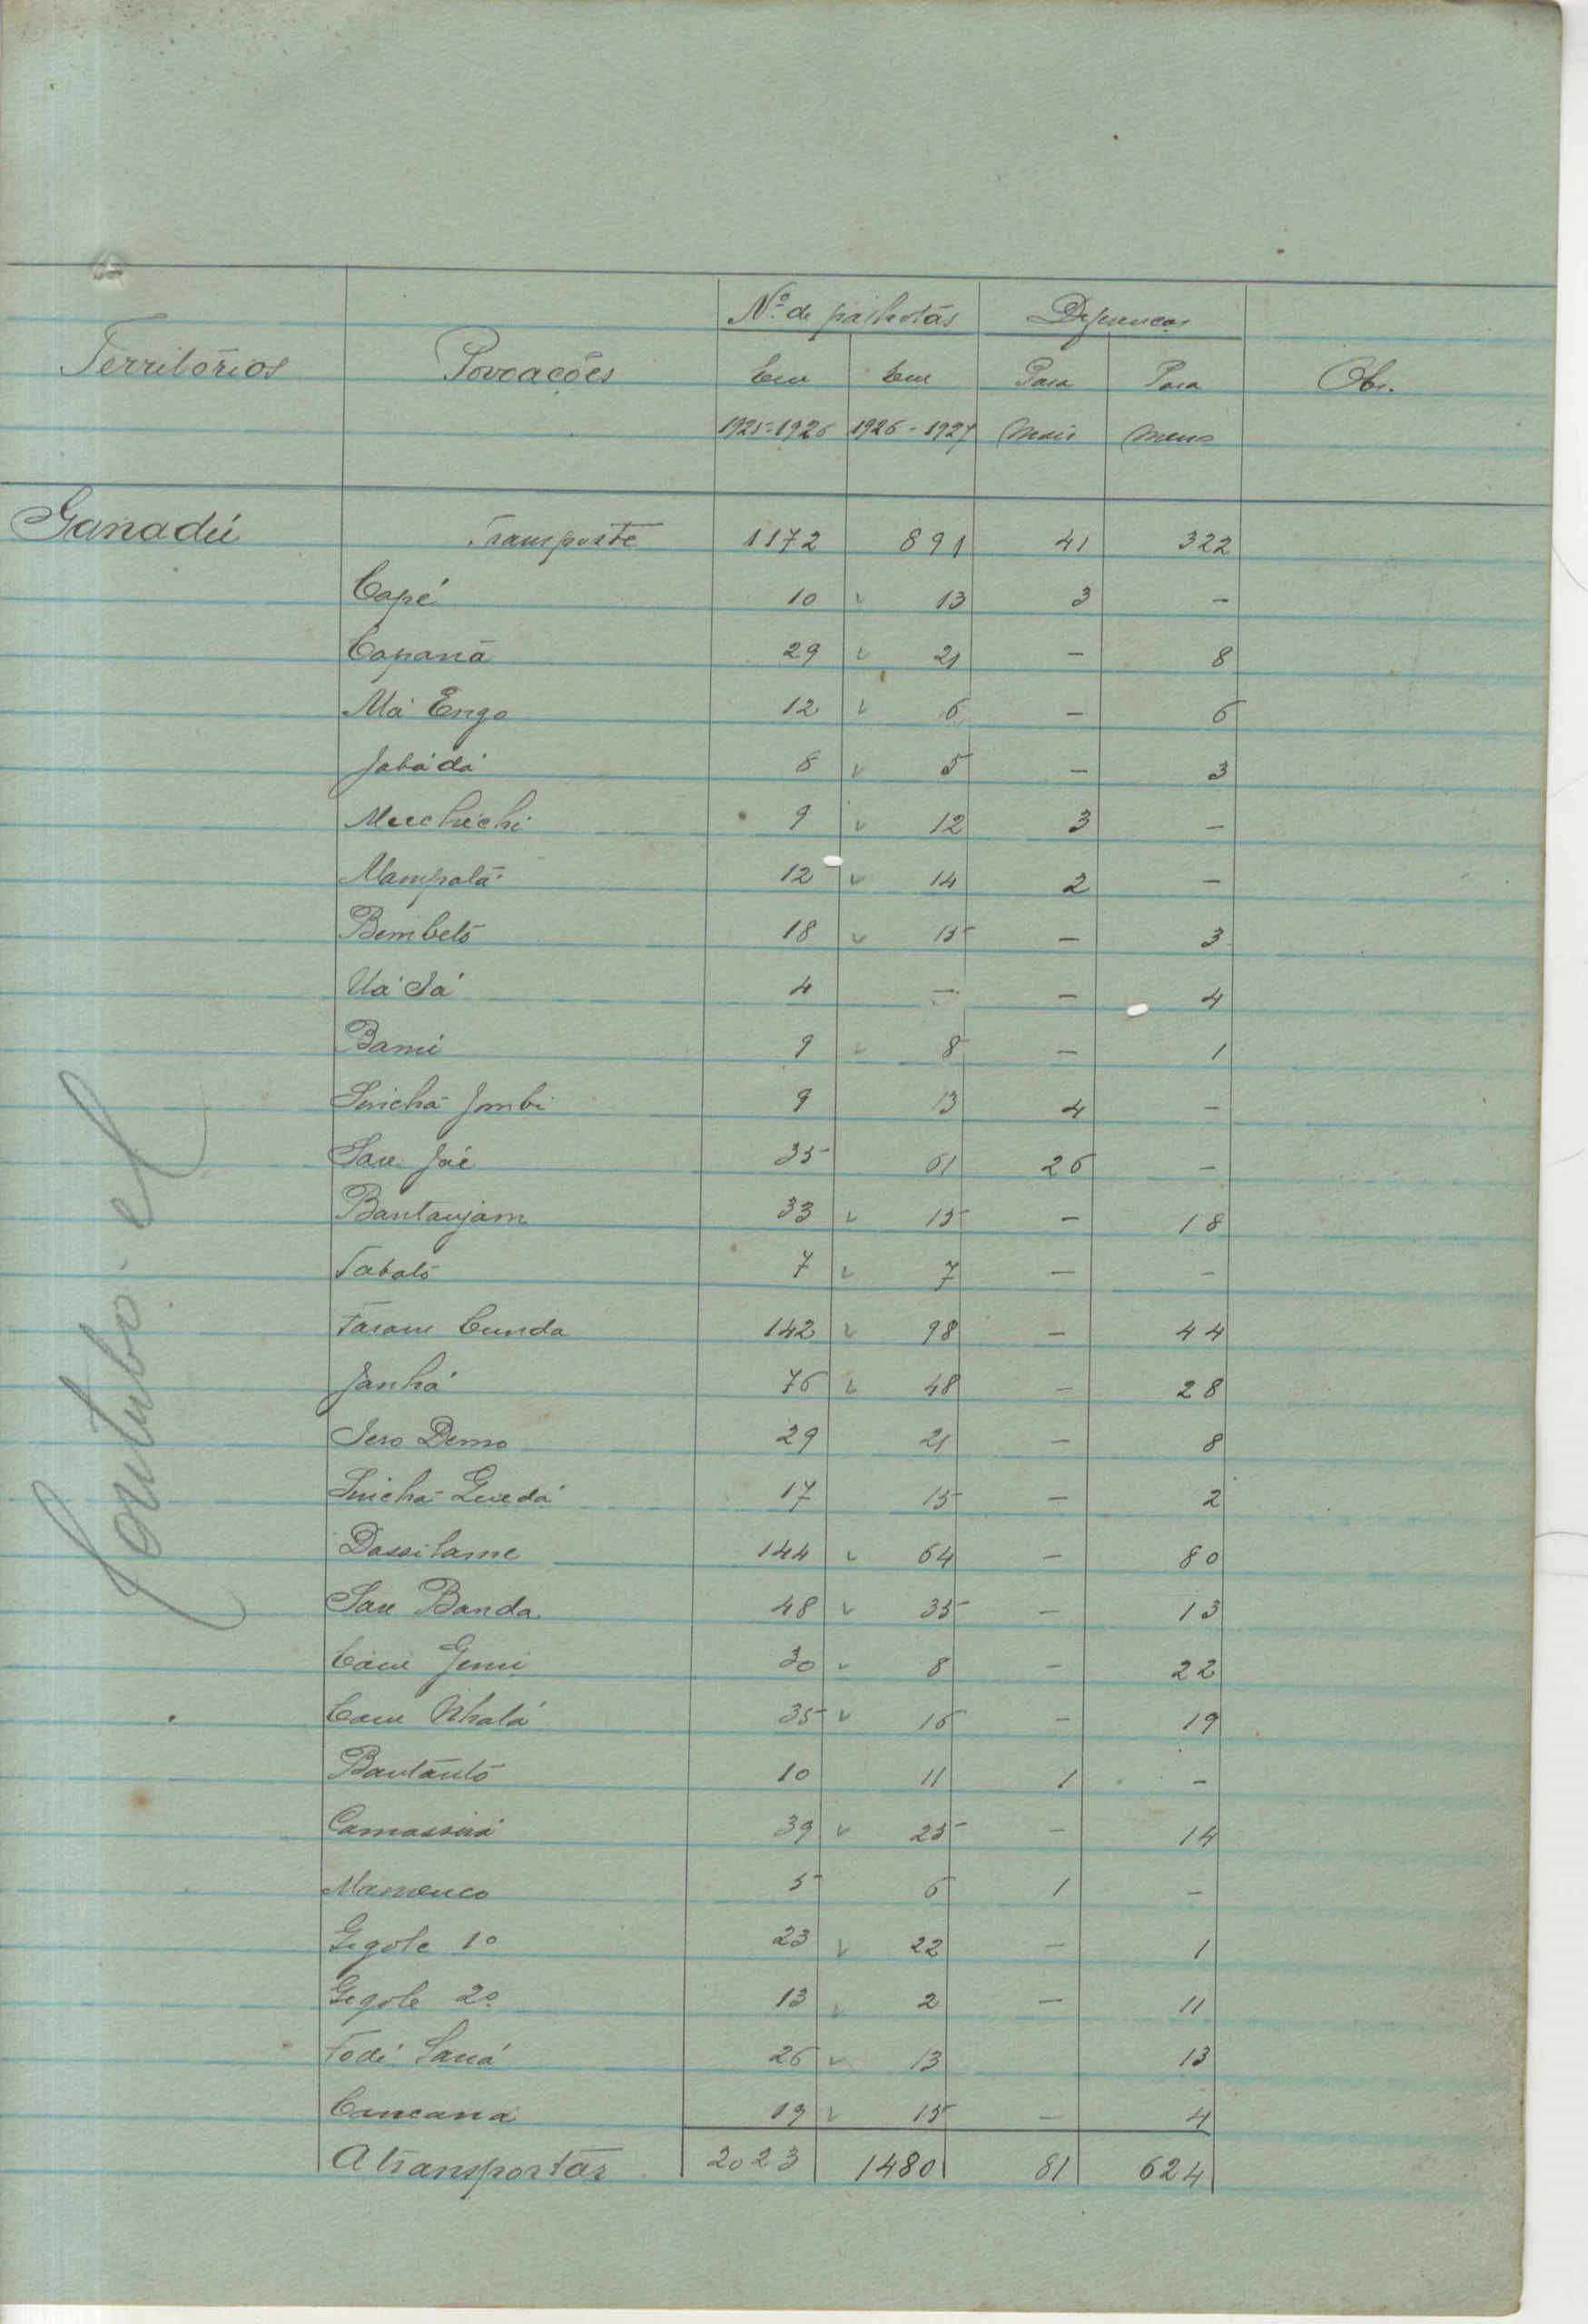 Nº de palhotas Diferenças
Territórios Povoações Em Em Para Para Obs.
1925-1926 1926-1927 Mais Menos
Ganadú Transporte 1172 891 41 322
Capé 10 13 3 -
Capanã 29 21 - 8
Má Engo 12 6 - 6
Jabádá 8 5 - 3
9 12 3 -
Mampatá 12 14 2 -
Bembeló 18 15 - 3
4 - - 4
9 8 - 1
Sincha Jombi 9 13 4 -
Sare Jáé 35 61 26 -
Bantanjam 33 15 - 18
Tabató 7 7 - -
Cunda 142 98 - 44
Janhá 76 48 - 28
Sero Demo 29 21 - 8
Sincha 17 15 - 2
Dassilame 144 64 - 80
Sare Banda 48 35 - 13
30 8 - 22
Nhalá 35 16 - 19
Bantantó 10 11 1 -
Camassirá 39 25 - 14
5 6 1 -
Gegole 1º 23 22 - 1
Gegole 2º 13 2 - 11
26 13 13
Cancana 19 15 - 4
A transportar 2023 1480 81 624
Contubo-el